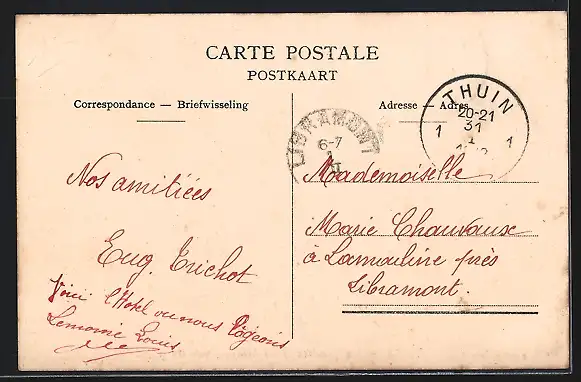 CARTE POSTALE
POSTKAART
Correspondance — Briefwisseling
Adresse — Adres
THUIN
20-21
31
1
1 1
LIBRAMONT
6-7
Nos amitiées
Eug. Trichot
Voici l'Hotel ou nous logeons
Lemoine Louis
Mademoiselle
Marie Chauvaux
à Lamouline près
Libramont.